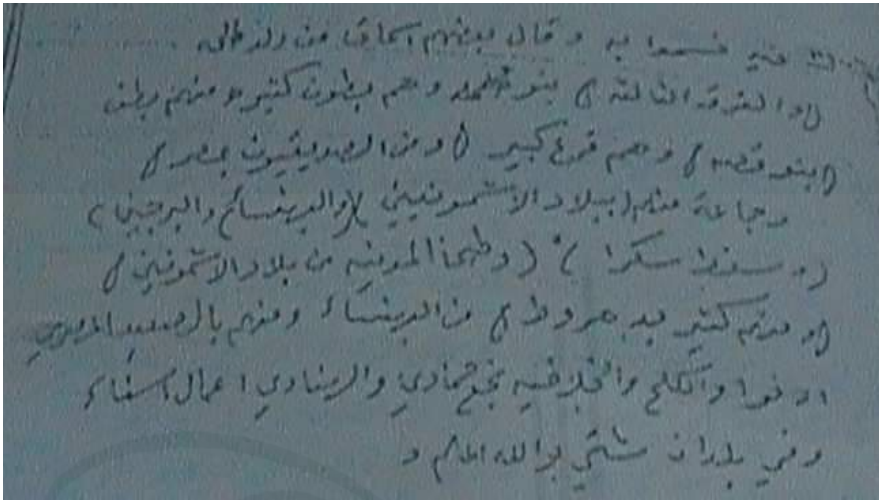 فيه فسموا به وقال بعضهم اسحاق من ولد طلحه
( والفرقه الثالثه ) بنو محمد وهم بطون كثيره منهم بطن
( بنو قصه ) وهم فرع كبير ( ومن الصديقيون بمصر )
وجماعة منهم ( ببلاد الاشمونين ) ( والبهنسا والبرجين )
( وسفط سكرا ) ( وطحا المدينه من بلاد الاشمونين )
( ومنهم كثير بد هروط ) من البهنساء ومنهم بالصعيد
ادفوا والكلح نجع حمادي والرينادي اعمال اسناء
وفي بلدان شتي والله العالم